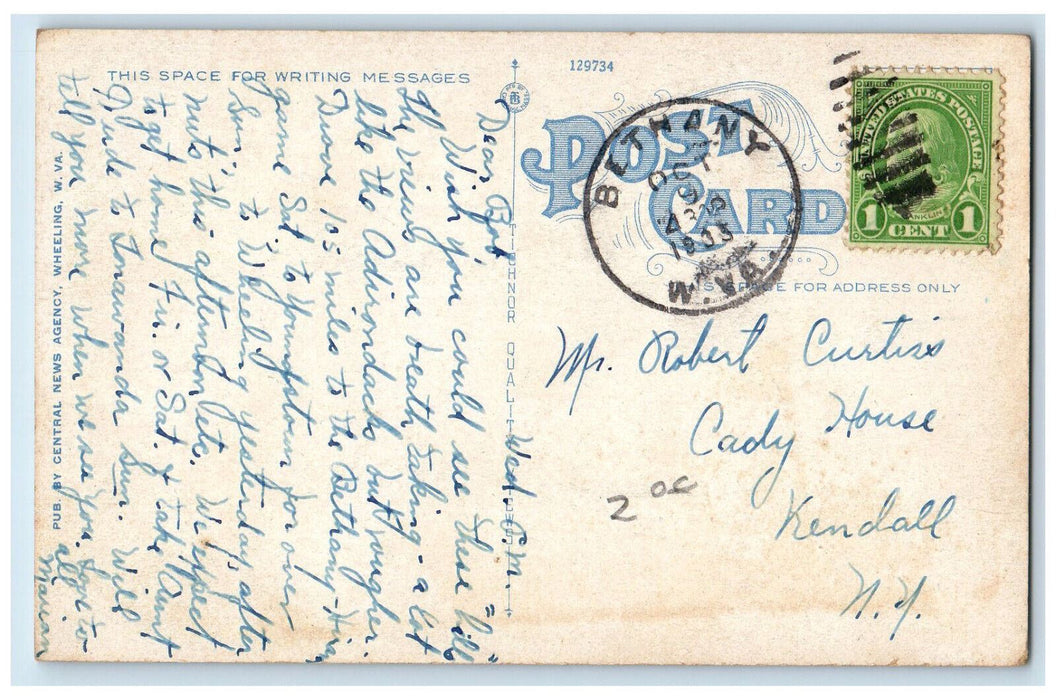 THIS SPACE FOR WRITING MESSAGES
129734
POST CARD
BETHANY
OCT
9
1935
W.VA.
UNITED STATES POSTAGE
FRANKLIN
1 CENT 1
SPACE FOR ADDRESS ONLY
PUB. BY CENTRAL NEWS AGENCY, WHEELING, W. VA.
TICHNOR QUALITY
Wed. P.M.
Dear Bob,
Wish you could see these "hills"
the views are breath taking - a lot
like the Adirondacks but rougher.
Drove 105 miles to the Bethany-Hiram
game Sat. to Youngstown for over
Sun. to Wheeling yesterday, after
nuts this afternoon etc. We expect
to get home Fri. or Sat. & take Aunt
Jude to Tonawanda Sun. Will
tell you more when we see you. Love to
all
Marian
Mr. Robert Curtiss
Cady House
Kendall
N.Y.
2 oc